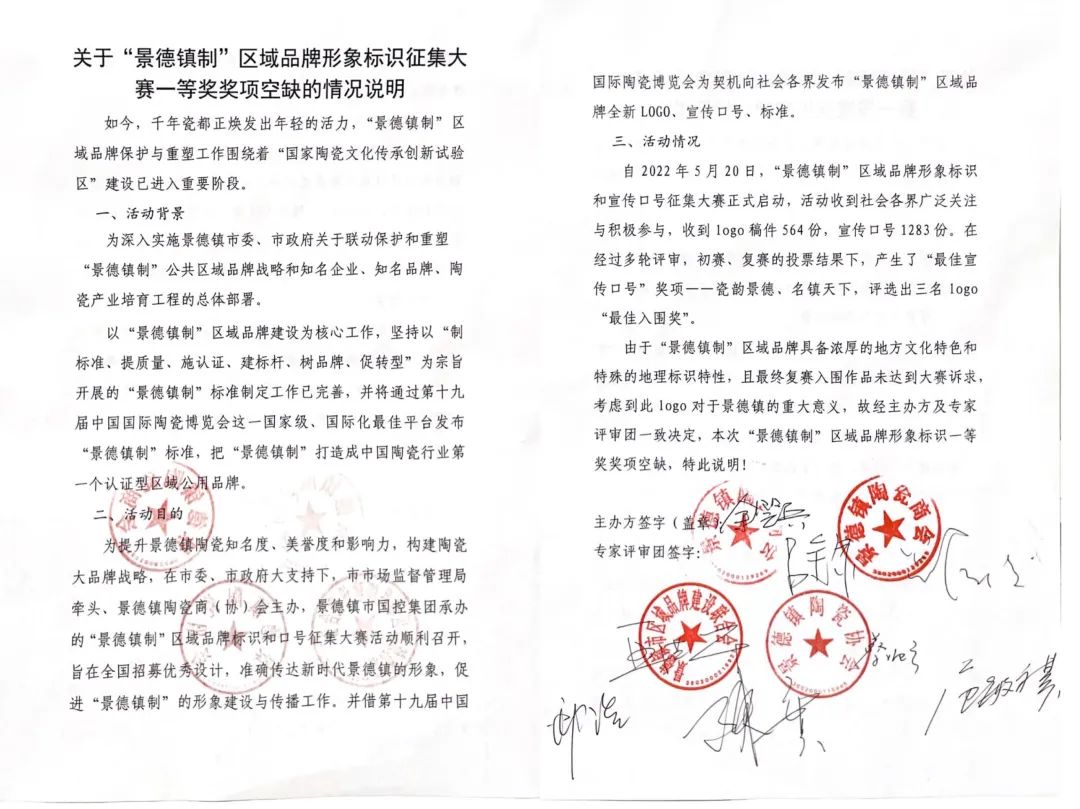 关于“景德镇制”区域品牌形象标识征集大
赛一等奖奖项空缺的情况说明
如今，千年瓷都正焕发出年轻的活力，“景德镇制”区
域品牌保护与重塑工作围绕着“国家陶瓷文化传承创新试验
区”建设已进入重要阶段。
一、活动背景
为深入实施景德镇市委、市政府关于联动保护和重塑
“景德镇制”公共区域品牌战略和知名企业、知名品牌、陶
瓷产业培育工程的总体部署。
以“景德镇制”区域品牌建设为核心工作，坚持以“制
标准、提质量、施认证、建标杆、树品牌、促转型”为宗旨
开展的“景德镇制”标准制定工作已完善，并将通过第十九
届中国国际陶瓷博览会这一国家级、国际化最佳平台发布
“景德镇制”标准，把“景德镇制”打造成中国陶瓷行业第
一个认证型区域公用品牌。
二、活动目的
为提升景德镇陶瓷知名度、美誉度和影响力，构建陶瓷
大品牌战略，在市委、市政府大支持下，市市场监督管理局
牵头、景德镇陶瓷商（协）会主办，景德镇市国控集团承办
的“景德镇制”区域品牌标识和口号征集大赛活动顺利召开，
旨在全国招募优秀设计，准确传达新时代景德镇的形象，促
进“景德镇制”的形象建设与传播工作。并借第十九届中国
国际陶瓷博览会为契机向社会各界发布“景德镇制”区域品
牌全新 LOGO、宣传口号、标准。
三、活动情况
自 2022 年 5 月 20 日，“景德镇制”区域品牌形象标识
和宣传口号征集大赛正式启动，活动收到社会各界广泛关注
与积极参与，收到 logo 稿件 564 份，宣传口号 1283 份。在
经过多轮评审，初赛、复赛的投票结果下，产生了“最佳宣
传口号”奖项——瓷韵景德、名镇天下，评选出三名 logo
“最佳入围奖”。
由于“景德镇制”区域品牌具备浓厚的地方文化特色和
特殊的地理标识特性，且最终复赛入围作品未达到大赛诉求，
考虑到此 logo 对于景德镇的重大意义，故经主办方及专家
评审团一致决定，本次“景德镇制”区域品牌形象标识一等
奖奖项空缺，特此说明！
主办方签字（盖章）：
专家评审团签字：
景德镇陶瓷商会
区域品牌建设联合会
景德镇陶瓷协会